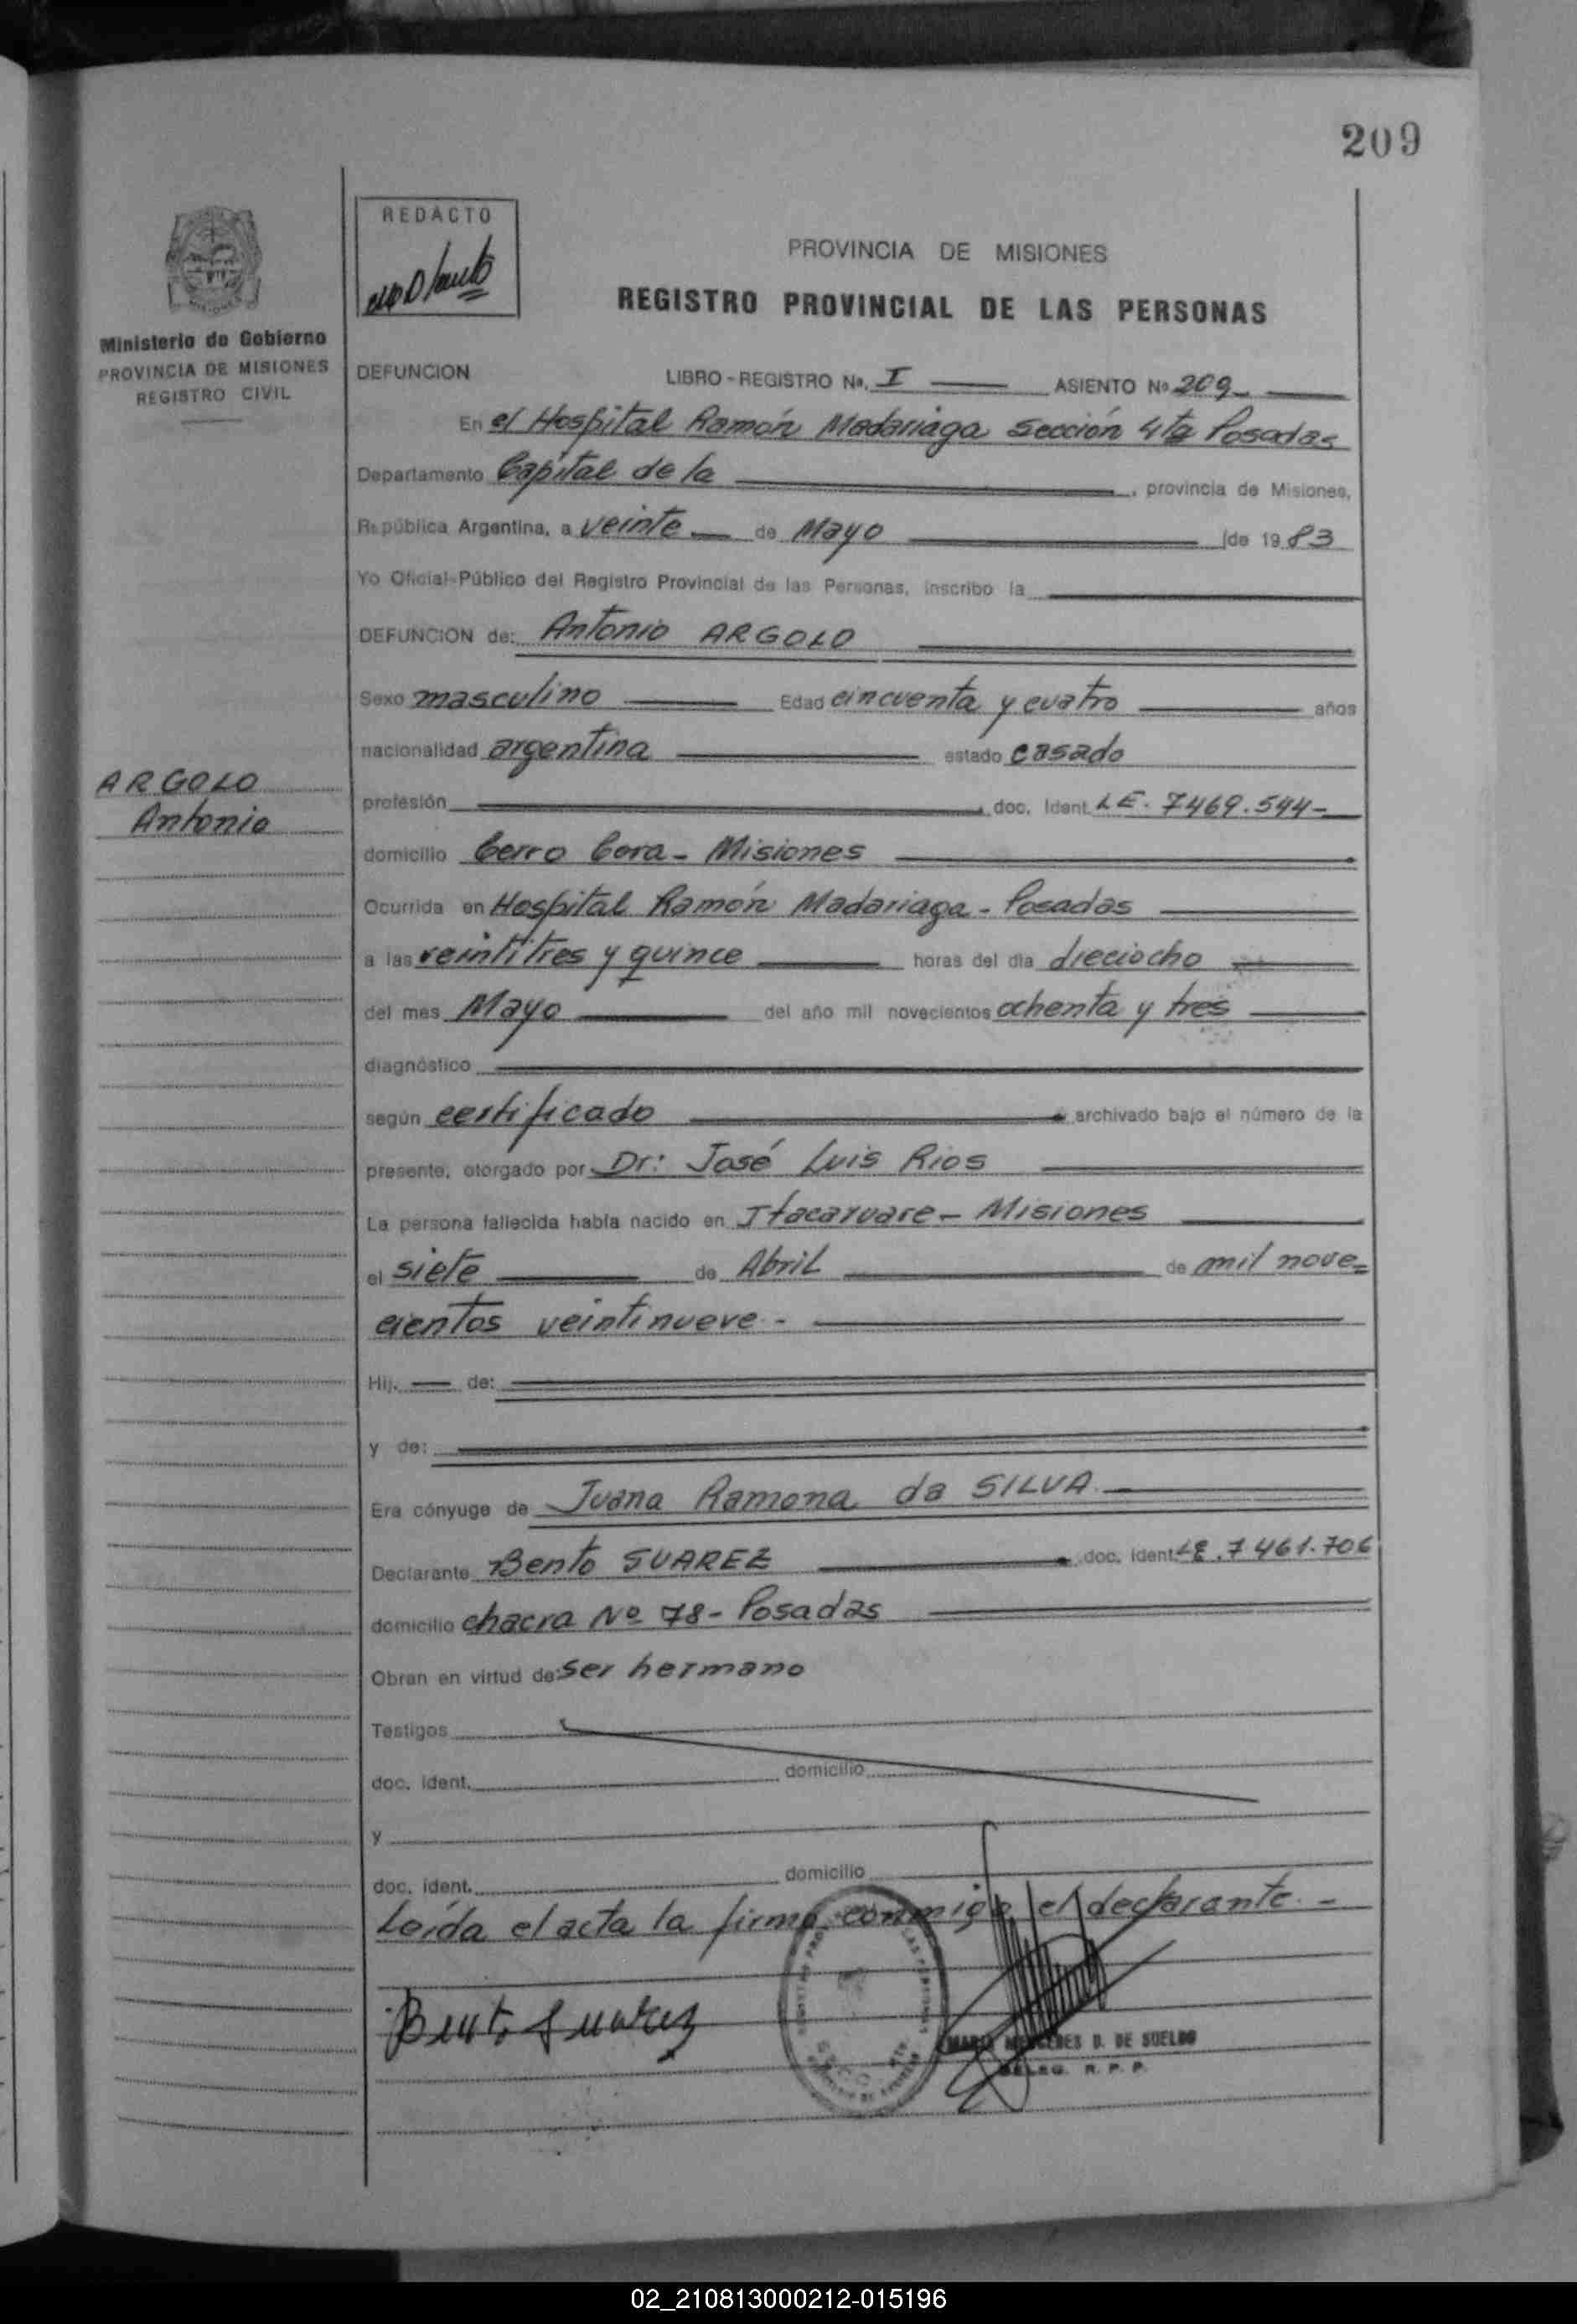 209
REDACTO
PROVINCIA DE MISIONES
REGISTRO PROVINCIAL DE LAS PERSONAS
Ministerio de Gobierno
PROVINCIA DE MISIONES
REGISTRO CIVIL
DEFUNCION LIBRO-REGISTRO Nº. I ASIENTO Nº 209
En el Hospital Ramón Madariaga sección 4ta Posadas
Departamento Capital de la , provincia de Misiones,
República Argentina, a veinte de Mayo de 1983
Yo Oficial-Público del Registro Provincial de las Personas, inscribo la
DEFUNCION de: Antonio ARGOLO
Sexo masculino Edad cincuenta y cuatro años
nacionalidad argentina estado casado
ARGOLO
Antonio
profesión doc. Ident. LE. 7469.544-
domicilio Cerro Cora - Misiones
Ocurrida en Hospital Ramón Madariaga - Posadas
a las veintitres y quince horas del día dieciocho
del mes Mayo del año mil novecientos ochenta y tres
diagnóstico
según certificado archivado bajo el número de la
presente, otorgado por Dr: José Luis Rios
La persona fallecida había nacido en Itacaruare - Misiones
el siete de Abril de mil nove=
cientos veintinueve.-
Hij. de:
y de:
Era cónyuge de Juana Ramona da SILVA.
Declarante Bento SUAREZ doc. ident. LE. 7.461.706
domicilio chacra Nº 78 - Posadas
Obran en virtud de: ser hermano
Testigos
doc. ident. domicilio
y
doc. ident. domicilio
Leída el acta la firma conmigo el declarante.-
Bento Suarez
MARIA MERCEDES D. DE SUELDO
DELEG. R. P. P.
02_210813000212-015196